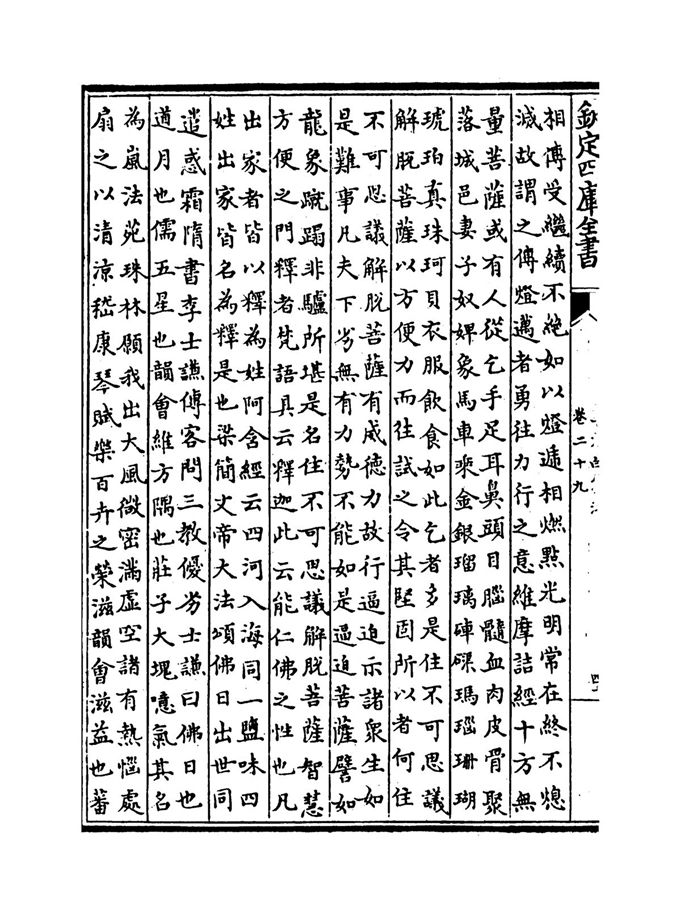 欽定四庫全書
卷二十九
相傳受繼續不絶如以燈遞相燃㸃光明常在終不熄
滅故謂之傳燈邁者勇往力行之意維摩詰經十方無
量菩薩或有人從乞手足耳鼻頭目腦髓血肉皮骨聚
落城邑妻子奴婢象馬車乘金銀瑠璃硨磲瑪瑙珊瑚
琥珀真珠珂貝衣服飲食如此乞者多是住不可思議
解脫菩薩以方便力而往試之令其堅固所以者何住
不可思議解脫菩薩有威德力故行逼迫示諸衆生如
是難事凡夫下劣無有力勢不能如是逼迫菩薩譬如
龍象蹴蹋非驢所堪是名住不可思議解脫菩薩智慧
方便之門釋者梵語具云釋迦此云能仁佛之性也凡
出家者皆以釋為姓阿含經云四河入海同一鹽味四
姓出家皆名為釋是也梁簡文帝大法頌佛日出世同
遣惑霜隋書李士謙傳客問三教優劣士謙曰佛日也
道月也儒五星也韻會維方隅也莊子大塊噫氣其名
為嵐法苑珠林願我出大風微密滿虛空諸有熱惱處
扇之以清涼嵇康琴賦樂百卉之榮滋韻會滋益也蕃